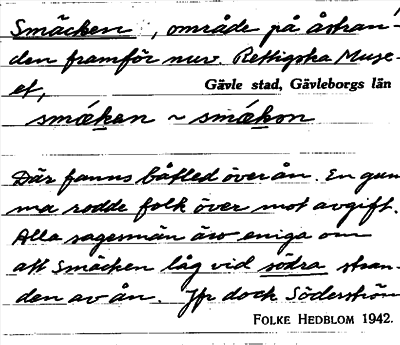 Smäcken, område på åstran-
den framför nuv. Rettigska Muse-
et,
Gävle stad, Gävleborgs län
smækan ~ smækon
Där fanns båtled över ån. En gum
ma rodde folk över mot avgift.
Alla sagesmän äro eniga om
att Smäcken låg vid södra stran-
den av ån. Jfr dock Söderström
FOLKE HEDBLOM 1942.